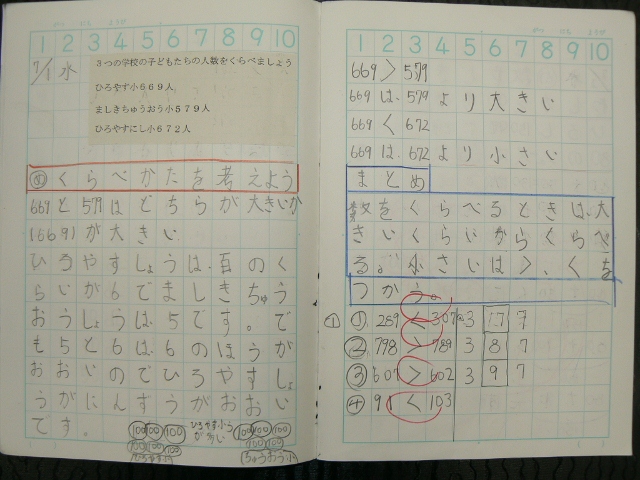 1 2 3 4 5 6 7 8 9 10
7/1 水
3つの学校の子どもたちの人数をくらべましょう
ひろやす小669人
ましきちゅうおう小579人
ひろやすにし小672人
め くらべかたを考えよう
669と579はどちらが大きいか
(669)が大きい
ひろやすしょうは、百のく
らいが6でましきちゅう
おうしょうは5です。で
もちと6は6のほうが
おおいのでひろやすしょ
うがにんずうがおおい
です。
100 100 100
ひろやす小
100 100
100 100
ちゅうおう小
1 2 3 4 5 6 7 8 9 10
669 > 579
669は、579より大きい
669 < 672
669は、672より小さい
まとめ
数をくらべるときは、大
きいくらいからくらべ
る。小さいは>、<を
つかう。
① ① 289 < 307 3 7
② 798 > 789 3 8 7
③ 601 > 602 3 9 7
④ < 103